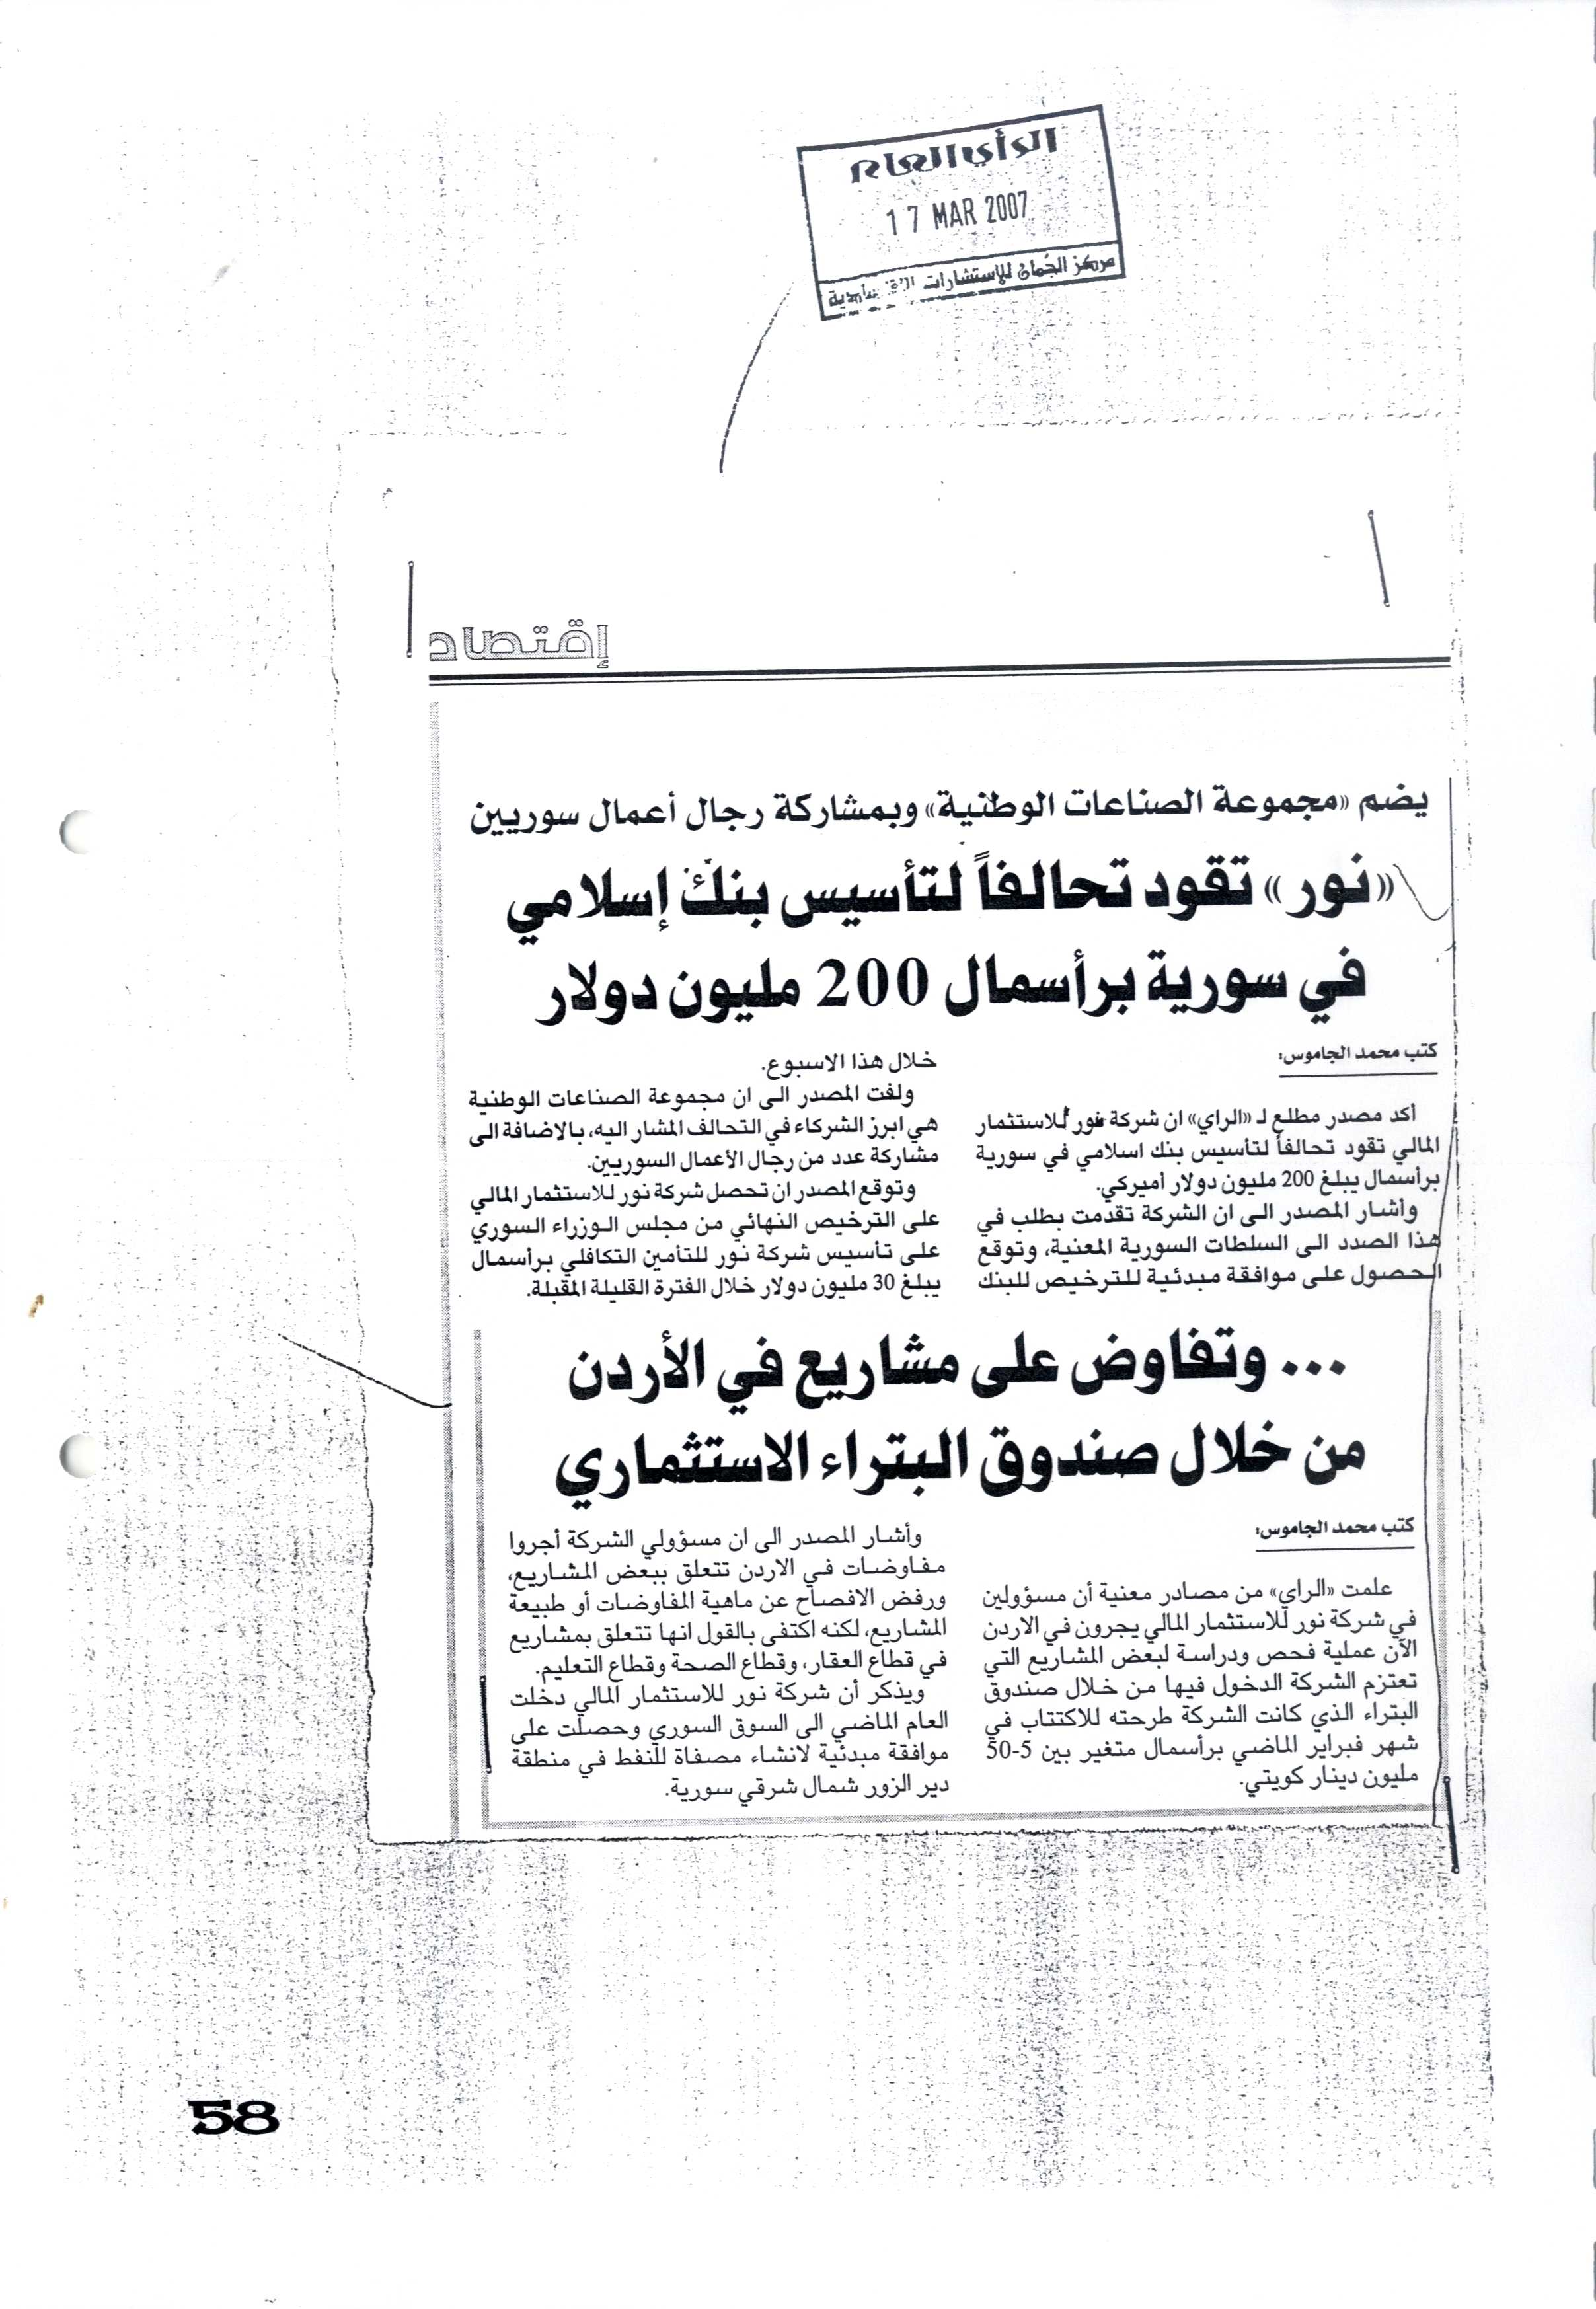 الرأي العام
17 MAR 2007
مركز الجمان للإستشارات
إقتصاد
يضم «مجموعة الصناعات الوطنية» وبمشاركة رجال أعمال سوريين
«نور» تقود تحالفاً لتأسيس بنك إسلامي
في سورية برأسمال 200 مليون دولار
كتب محمد الجاموس:
أكد مصدر مطلع لـ «الراي» ان شركة نور للاستثمار
المالي تقود تحالفاً لتأسيس بنك اسلامي في سورية
برأسمال يبلغ 200 مليون دولار أميركي.
وأشار المصدر الى ان الشركة تقدمت بطلب في
هذا الصدد الى السلطات السورية المعنية، وتوقع
الحصول على موافقة مبدئية للترخيص للبنك
خلال هذا الاسبوع.
ولفت المصدر الى ان مجموعة الصناعات الوطنية
هي ابرز الشركاء في التحالف المشار اليه، بالاضافة الى
مشاركة عدد من رجال الأعمال السوريين.
وتوقع المصدر ان تحصل شركة نور للاستثمار المالي
على الترخيص النهائي من مجلس الوزراء السوري
على تأسيس شركة نور للتأمين التكافلي برأسمال
يبلغ 30 مليون دولار خلال الفترة القليلة المقبلة.
... وتفاوض على مشاريع في الأردن
من خلال صندوق البتراء الاستثماري
كتب محمد الجاموس:
علمت «الراي» من مصادر معنية أن مسؤولين
في شركة نور للاستثمار المالي يجرون في الاردن
الآن عملية فحص ودراسة لبعض المشاريع التي
تعتزم الشركة الدخول فيها من خلال صندوق
البتراء الذي كانت الشركة طرحته للاكتتاب في
شهر فبراير الماضي برأسمال متغير بين 5-50
مليون دينار كويتي.
وأشار المصدر الى ان مسؤولي الشركة أجروا
مفاوضات في الاردن تتعلق ببعض المشاريع،
ورفض الافصاح عن ماهية المفاوضات أو طبيعة
المشاريع، لكنه اكتفى بالقول انها تتعلق بمشاريع
في قطاع العقار، وقطاع الصحة وقطاع التعليم.
ويذكر أن شركة نور للاستثمار المالي دخلت
العام الماضي الى السوق السوري وحصلت على
موافقة مبدئية لانشاء مصفاة للنفط في منطقة
دير الزور شمال شرقي سورية.
58